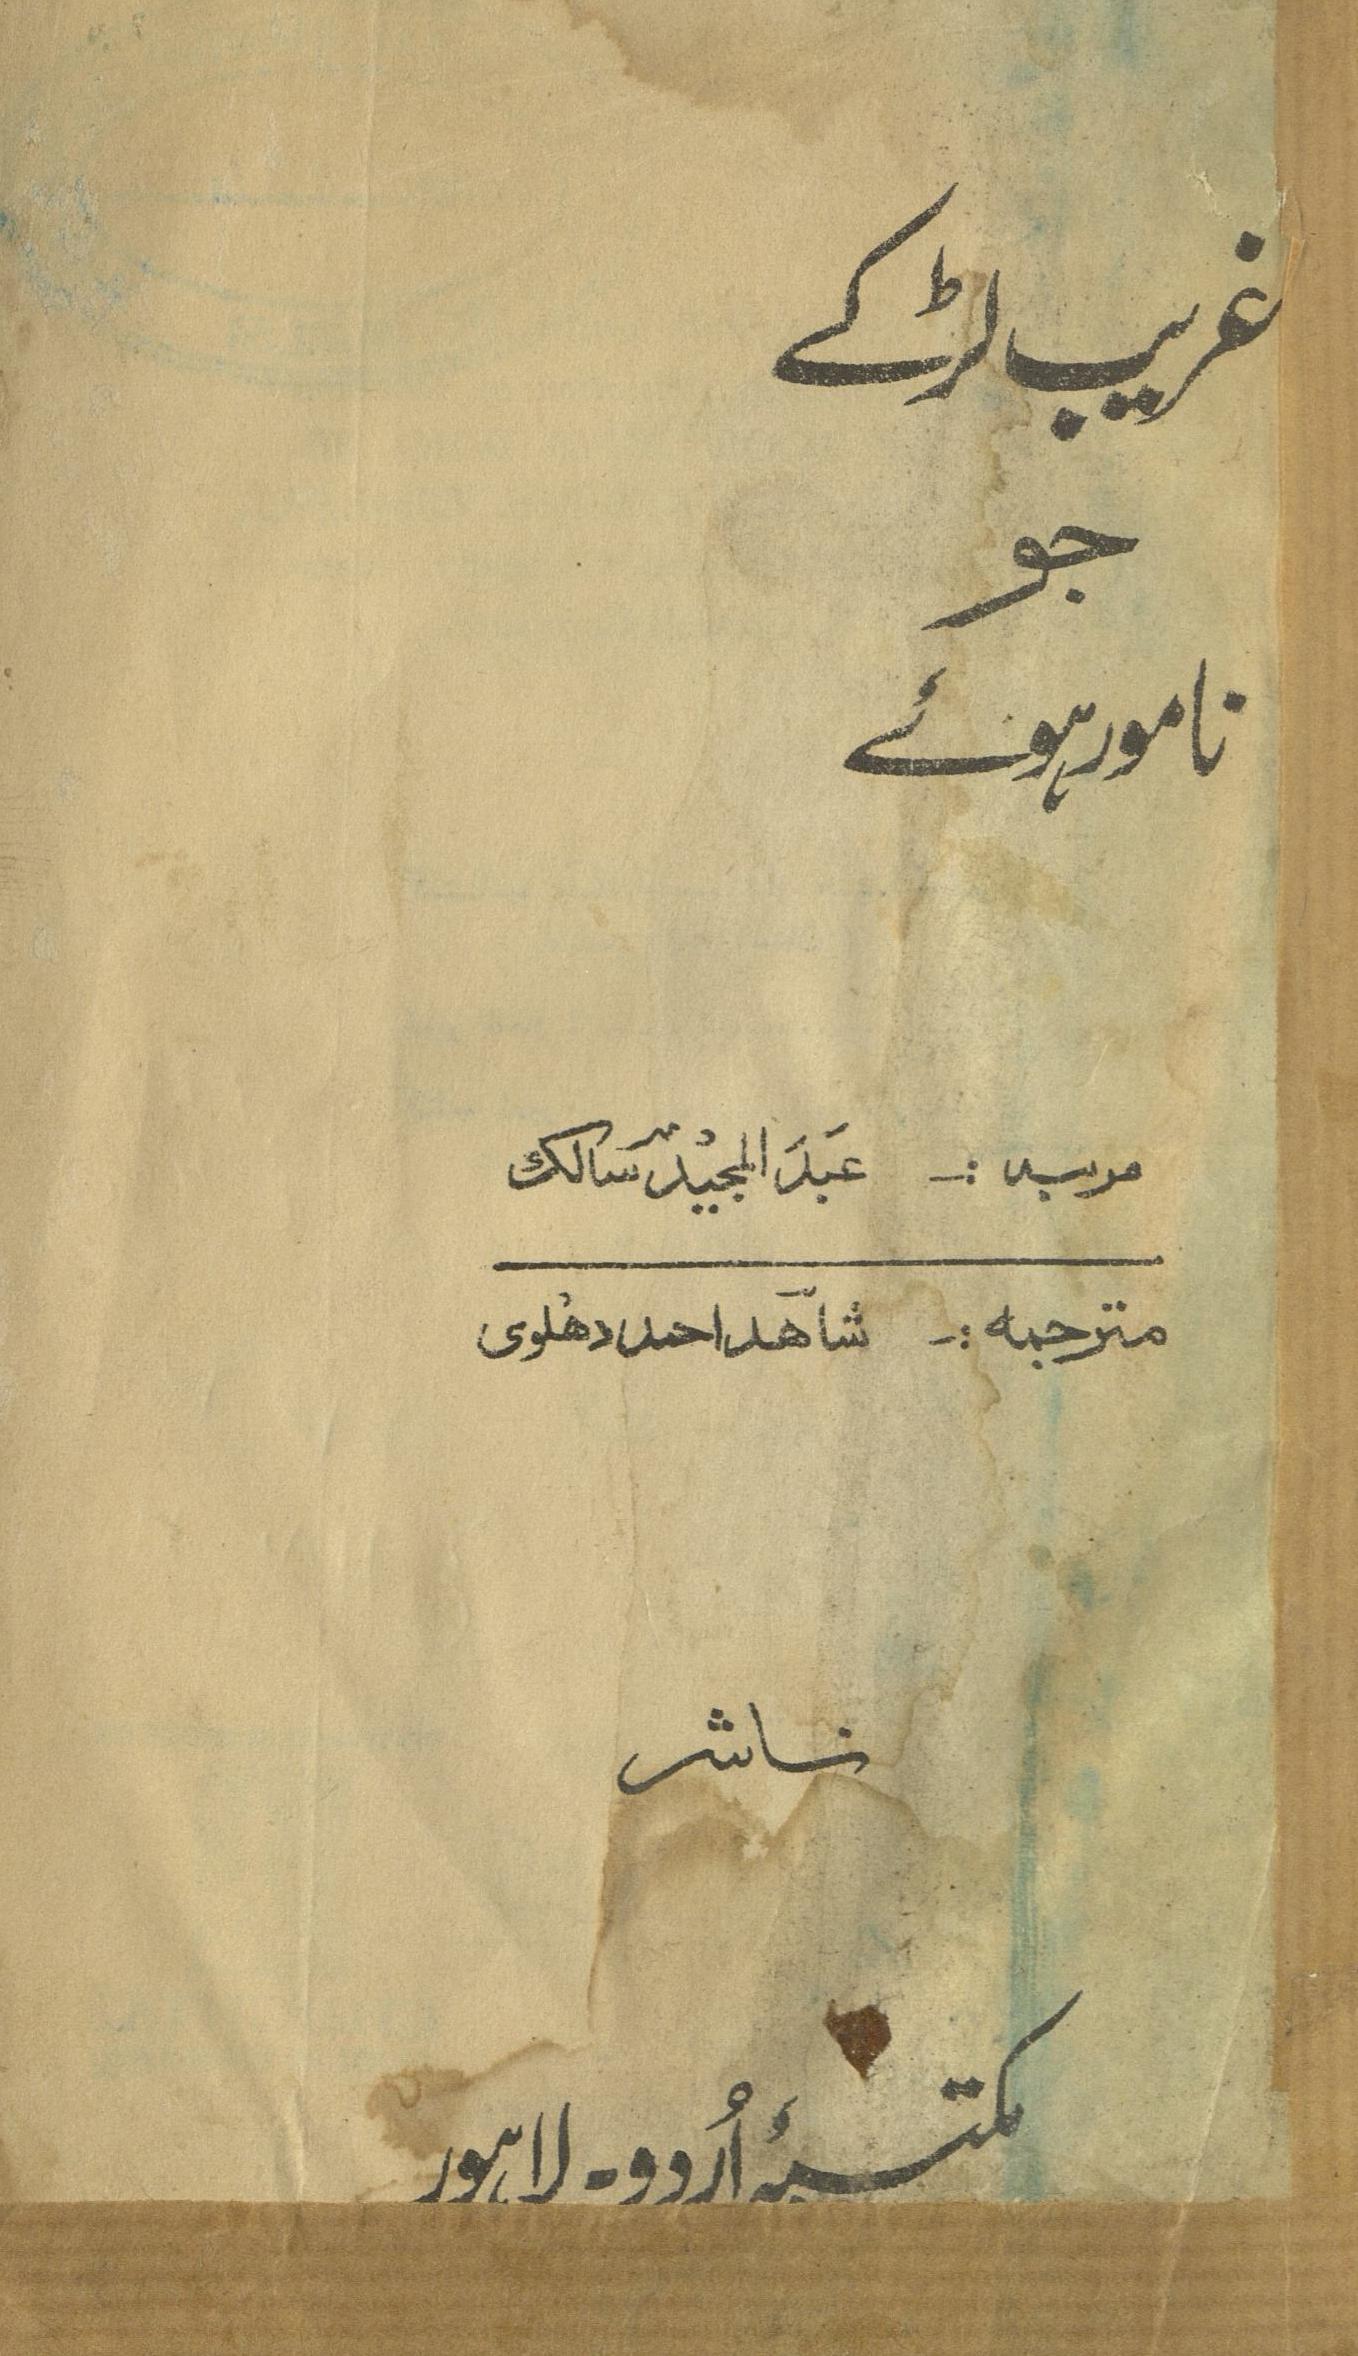 غریب لڑکے
جو
نامور ہوئے
مرتبہ :- عبدالمجید سالک
مترجمہ :- شاہد احمد دھلوی
ناشر
مکتبۂ اُردو - لاہور